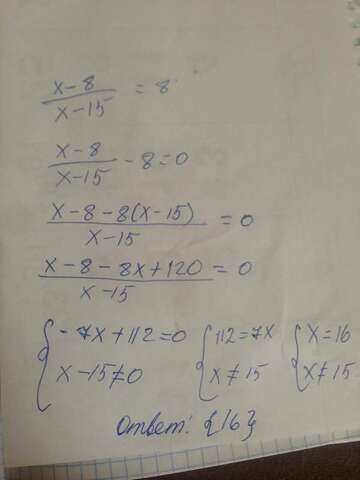 x-8/x-15 = 8
x-8/x-15 - 8 = 0
x-8-8(x-15)/x-15 = 0
x-8-8x+120/x-15 = 0
{-7x+112=0 {112=7x {x=16
x-15≠0 x≠15 x≠15
Ответ: {16}